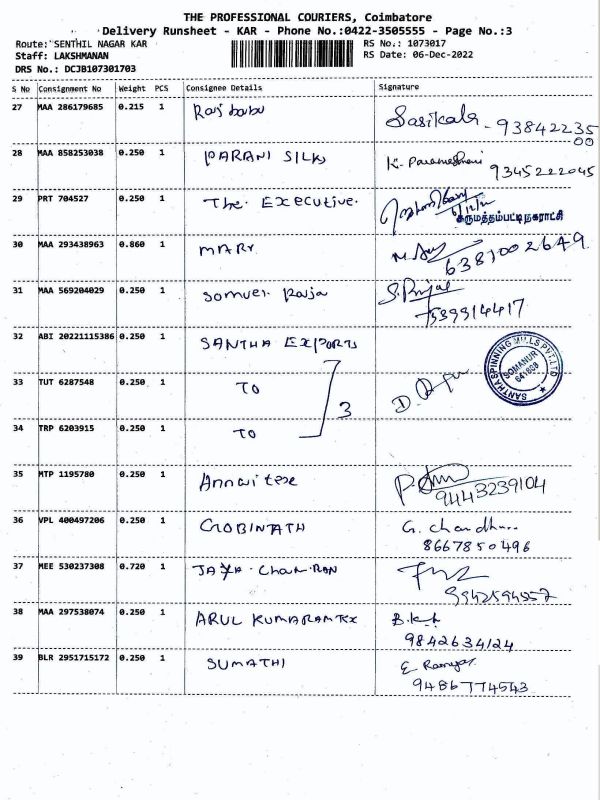 THE PROFESSIONAL COURIERS, Coimbatore
Delivery Runsheet - KAR - Phone No.:0422-3505555 - Page No.:3
Route: SENTHIL NAGAR KAR RS No.: 1073017
Staff: LAKSHMANAN RS Date: 06-Dec-2022
DRS No.: DCJB107301703
S No Consignment No Weight PCS Consignee Details Signature
27 MAA 286179685 0.215 1 Raj babu Sasikala - 93842235
00
28 MAA 858253038 0.250 1 PARANI SILK K. Parameshwari
9345222045
29 PRT 704527 0.250 1 The Executive.
6/12/22
கருமத்தம்பட்டி நகராட்சி
30 MAA 293438963 0.860 1 MARY
6381002649
31 MAA 569204029 0.250 1 Somuel Raja
7539914417
32 ABI 20221115386 0.250 1 SANTHA EXPORTS
SANTHA SPINNING MILLS PVT. LTD
SOMANUR
641668
33 TUT 6287548 0.250 1 TO 3
34 TRP 6203915 0.250 1 TO
35 MTP 1195780 0.250 1 Annai tex
9443239104
36 VPL 400497206 0.250 1 GOBINATH G.
8667850496
37 MEE 530237308 0.720 1 JAYA
9942594557
38 MAA 297538074 0.250 1 ARUL KUMARAN TEX
9842634124
39 BLR 2951715172 0.250 1 SUMATHI E
9486774543